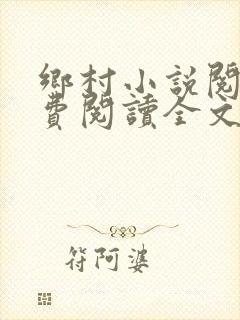 鄉村小説閱
費閱讀全文
符阿婆